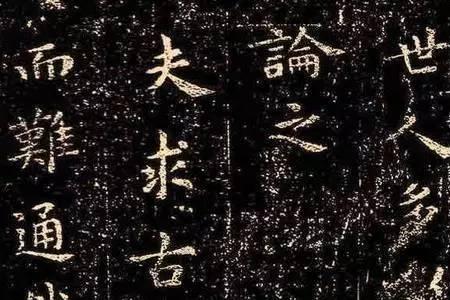 世人多
論之
夫求古
而難通